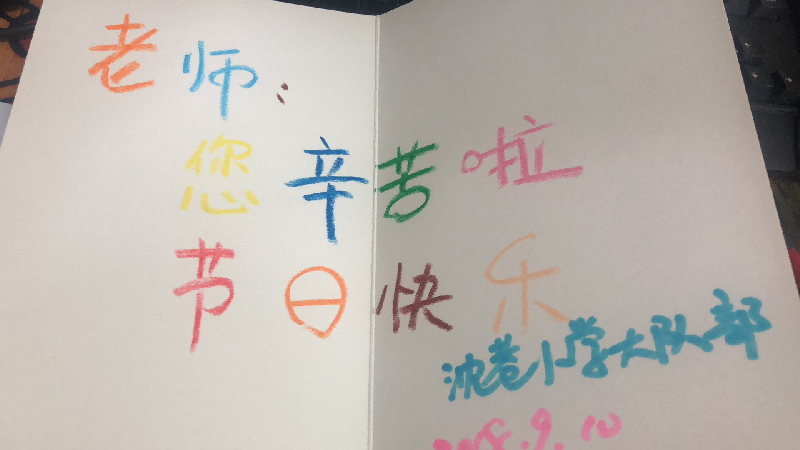 老师:
您辛苦啦
节日快乐
沈巷小学大队部
2018.9.10